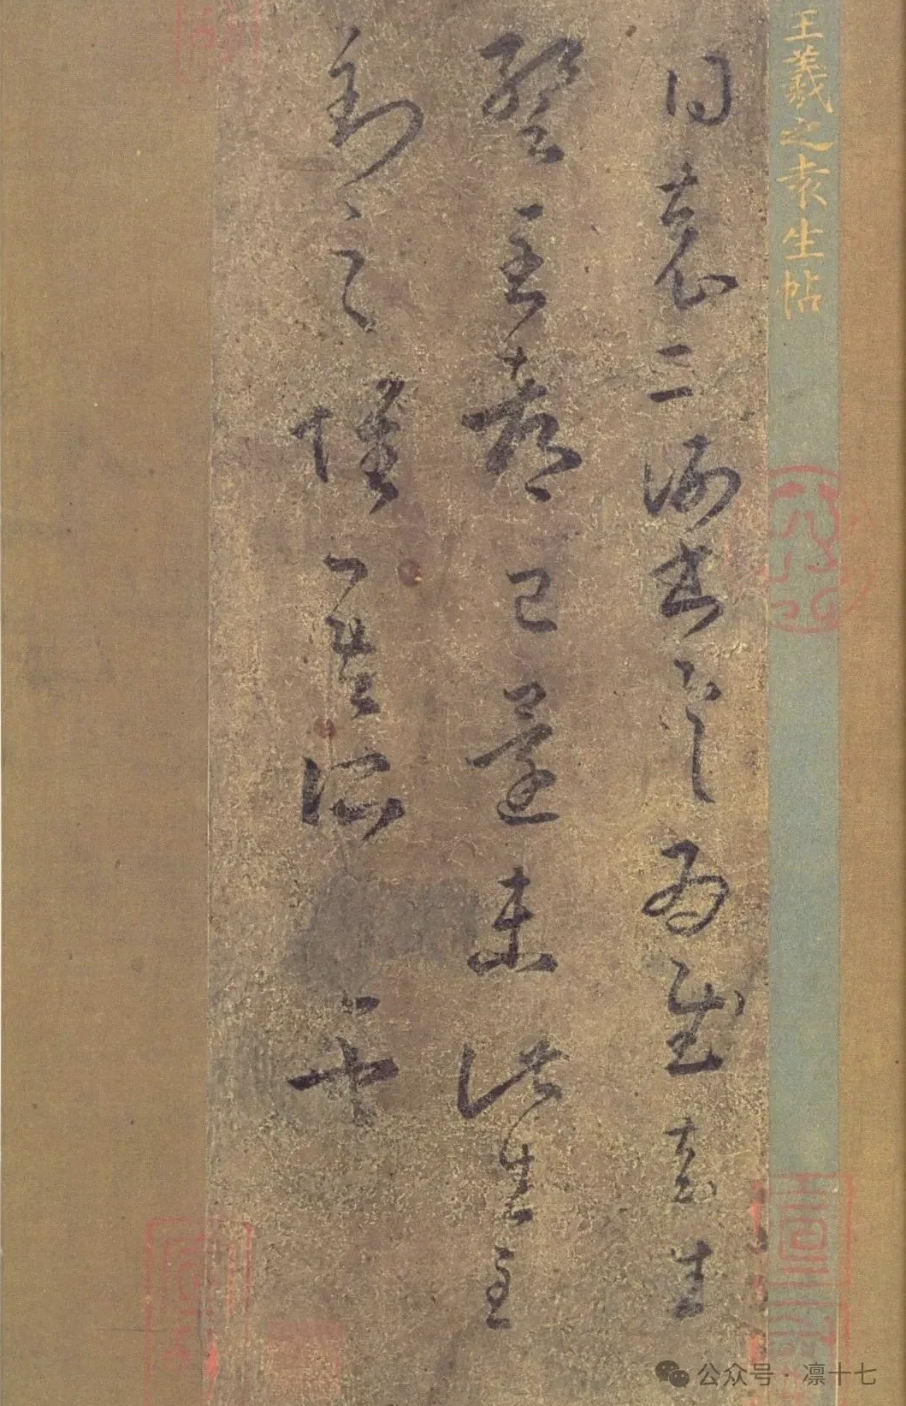 王羲之袁生帖
得袁二謝書具為慰袁生
暫至都已還未此生至
到之懷吾所盡也
公众号·凛十七